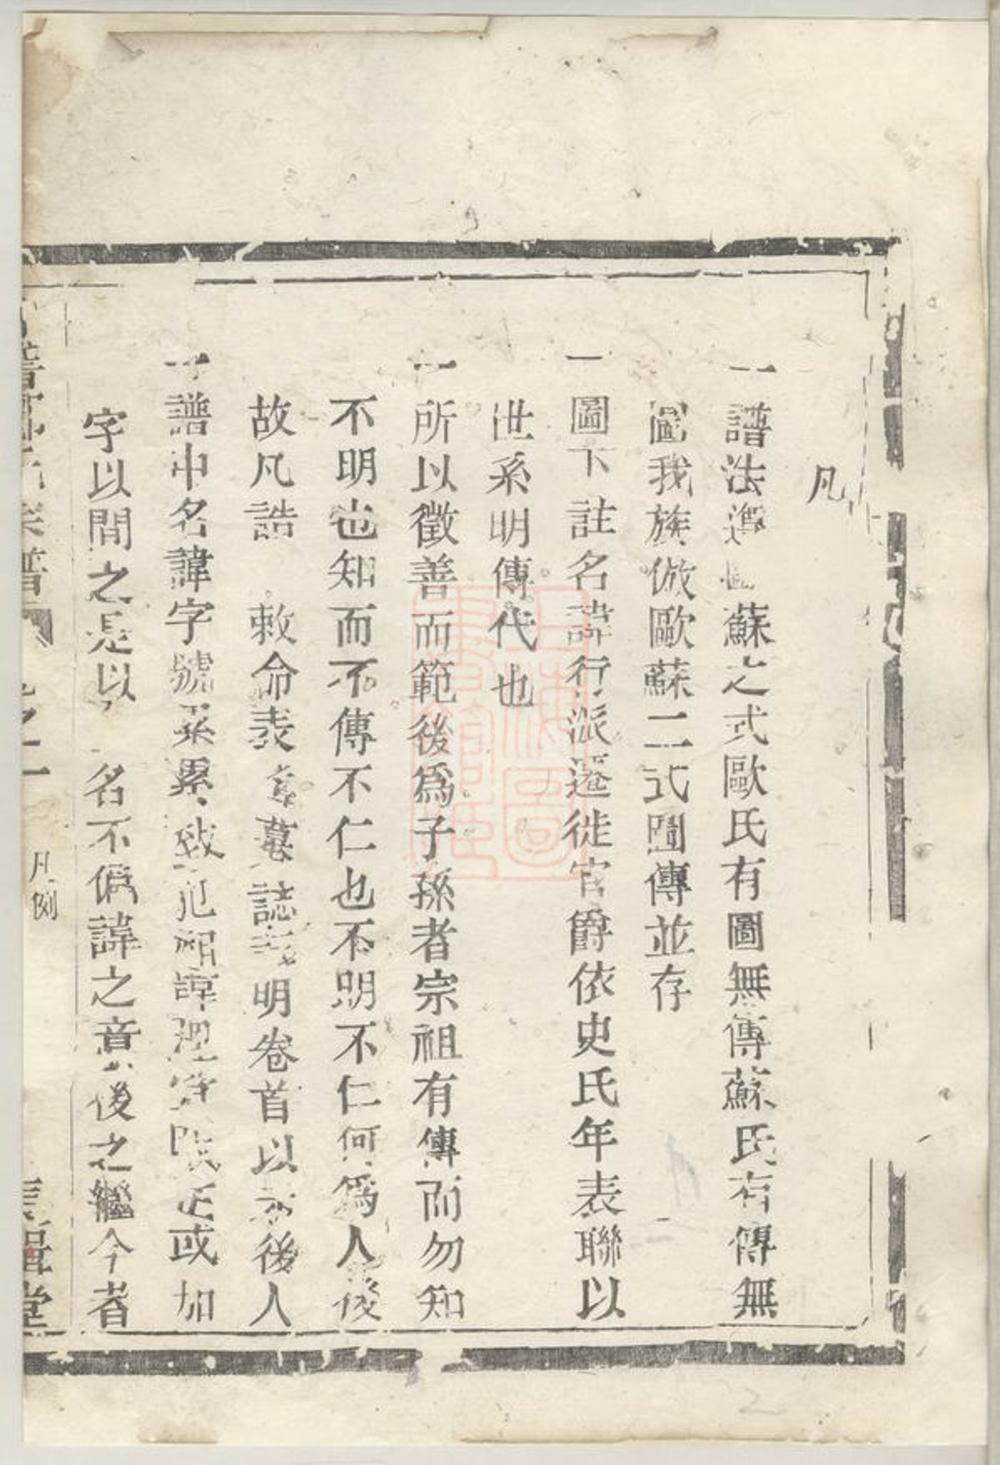 凡
一譜法蘇之式歐氏有圖無傳蘇氏有傳無
圖我族倣歐蘇二式圖傳並存
一圖下註名諱行派遷徙官爵依史氏年表聯以
世系明傳代也
一所以徵善而範後為子孫者宗祖有傳而勿知
不明也知而不傳不仁也不明不仁何為人後
故凡誥敕命表墓誌明卷首以示後人
一譜中名諱字號系累致犯相諱正或加
字以間之是以名不偏諱之意後之繼今者
譜
凡例
堂